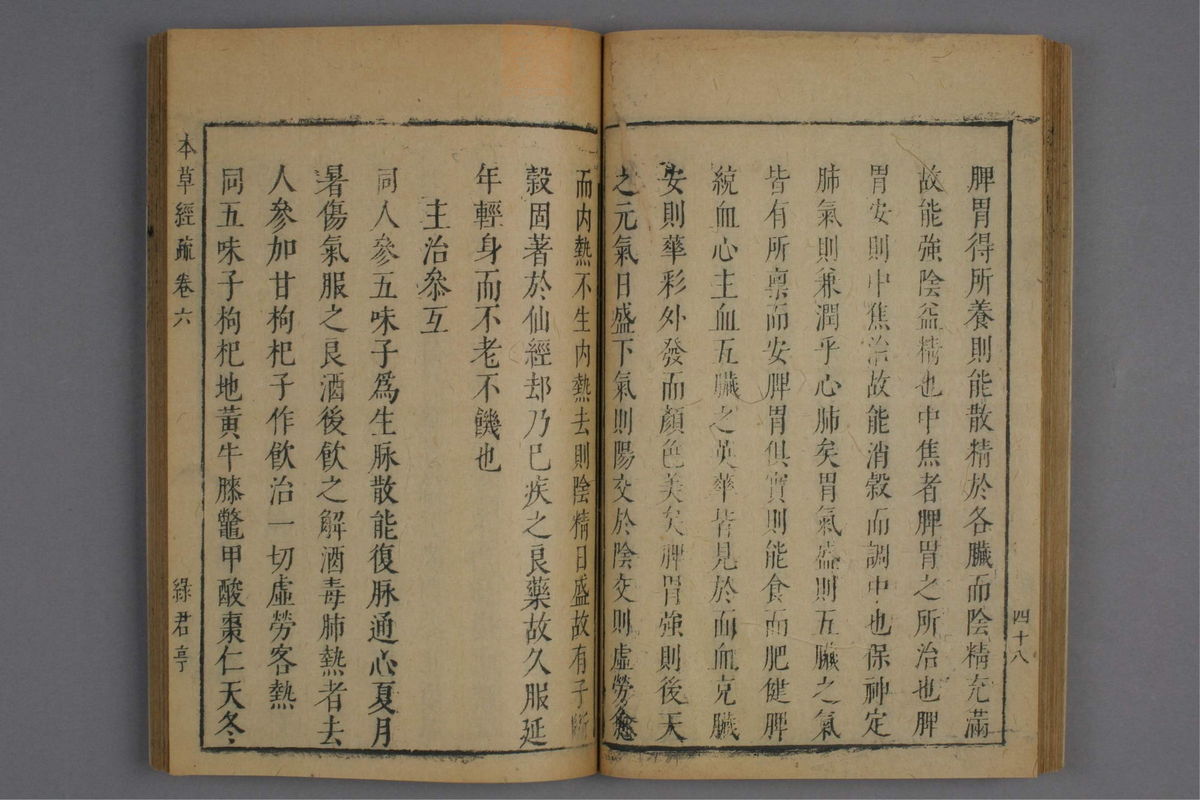 脾胃得所養則能散精於各臟而陰精充滿
故能強陰益精也中焦者脾胃之所治也脾
胃安則中焦治故能消穀而調中也保神定
肺氣則兼潤乎心肺矣胃氣盛則五臟之氣
皆有所稟而安脾胃俱實則能食而肥健脾
統血心主血五臟之英華皆見於面血克臟
安則華彩外發而顏色美矣脾胃強則後天
之元氣日盛下氣則陽交於陰交則虛勞愈
四十八
而內熱不生內熱去則陰精日盛故有子斷
穀固著於仙經却乃已疾之良藥故久服延
年輕身而不老不饑也
主治參互
同人參五味子爲生脉散能復脉通心夏月
暑傷氣服之良酒後飲之解酒毒肺熱者去
人參加甘枸杞子作飲治一切虛勞客熱
同五味子枸杞地黃牛膝鼈甲酸棗仁天冬
本草經疏卷六
綠君亭